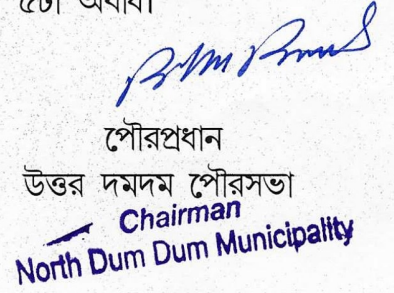 ৫টা অবধি।
পৌরপ্রধান
উত্তর দমদম পৌরসভা
Chairman
North Dum Dum Municipality